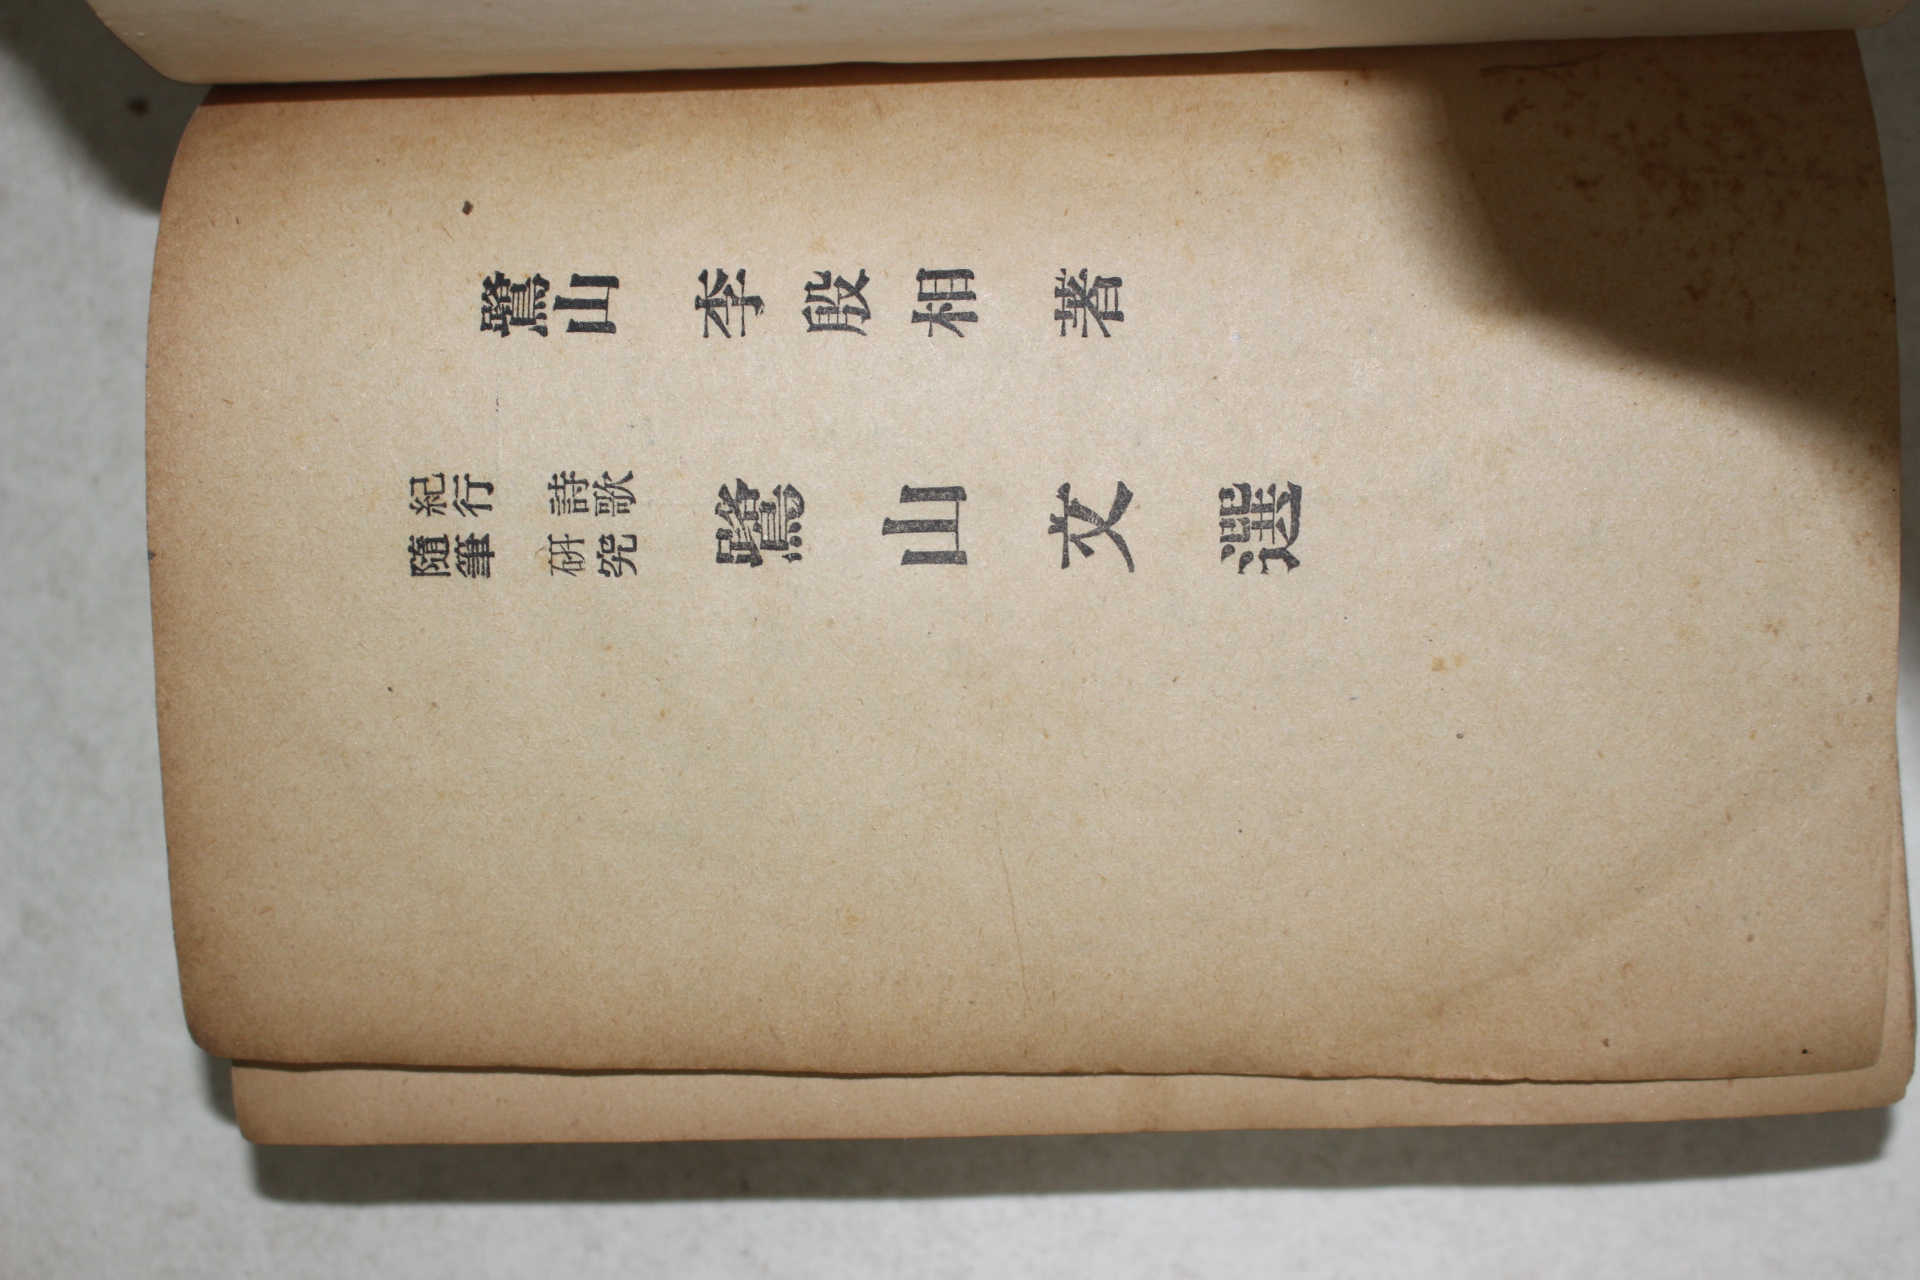 鷺山 李殷相 著
紀行 詩歌
隨筆 硏究
鷺山文選